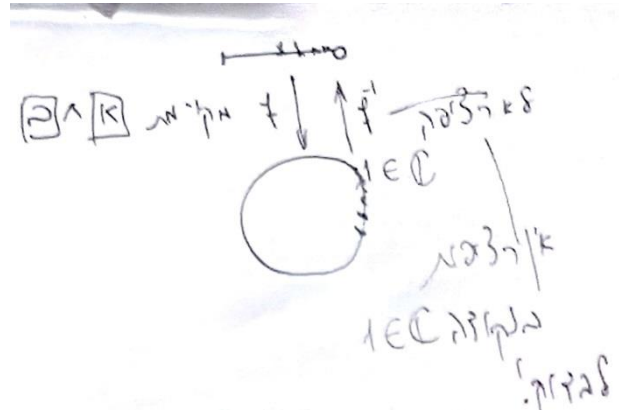 f מקיימת א ∧ ב
f⁻¹ לא רציפה
1 ∈ ℂ
אין רציפות
בנקודה 1 ∈ ℂ
לבדוק!